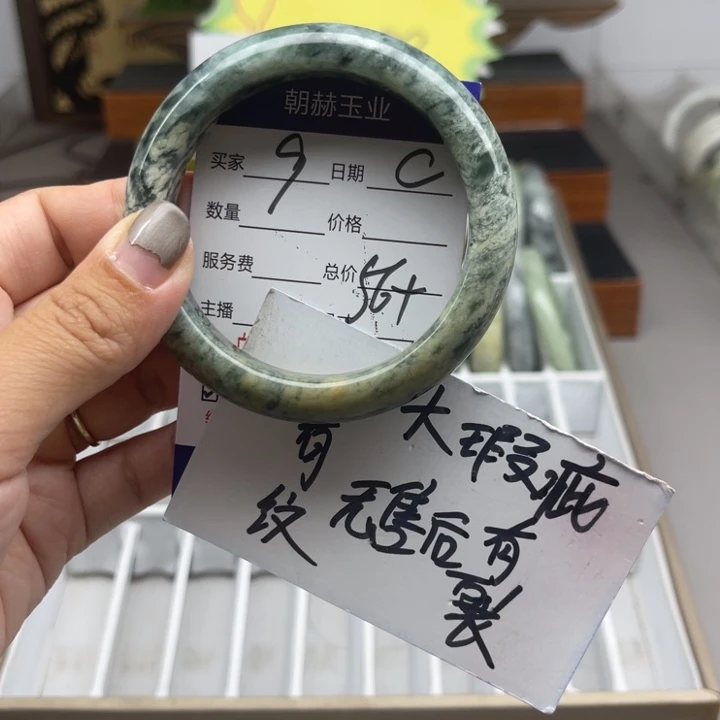 朝赫玉业
买家 9 日期 C
数量 价格
服务费 总价 56+
主播
大瑕疵
有 无售后有
纹 裂